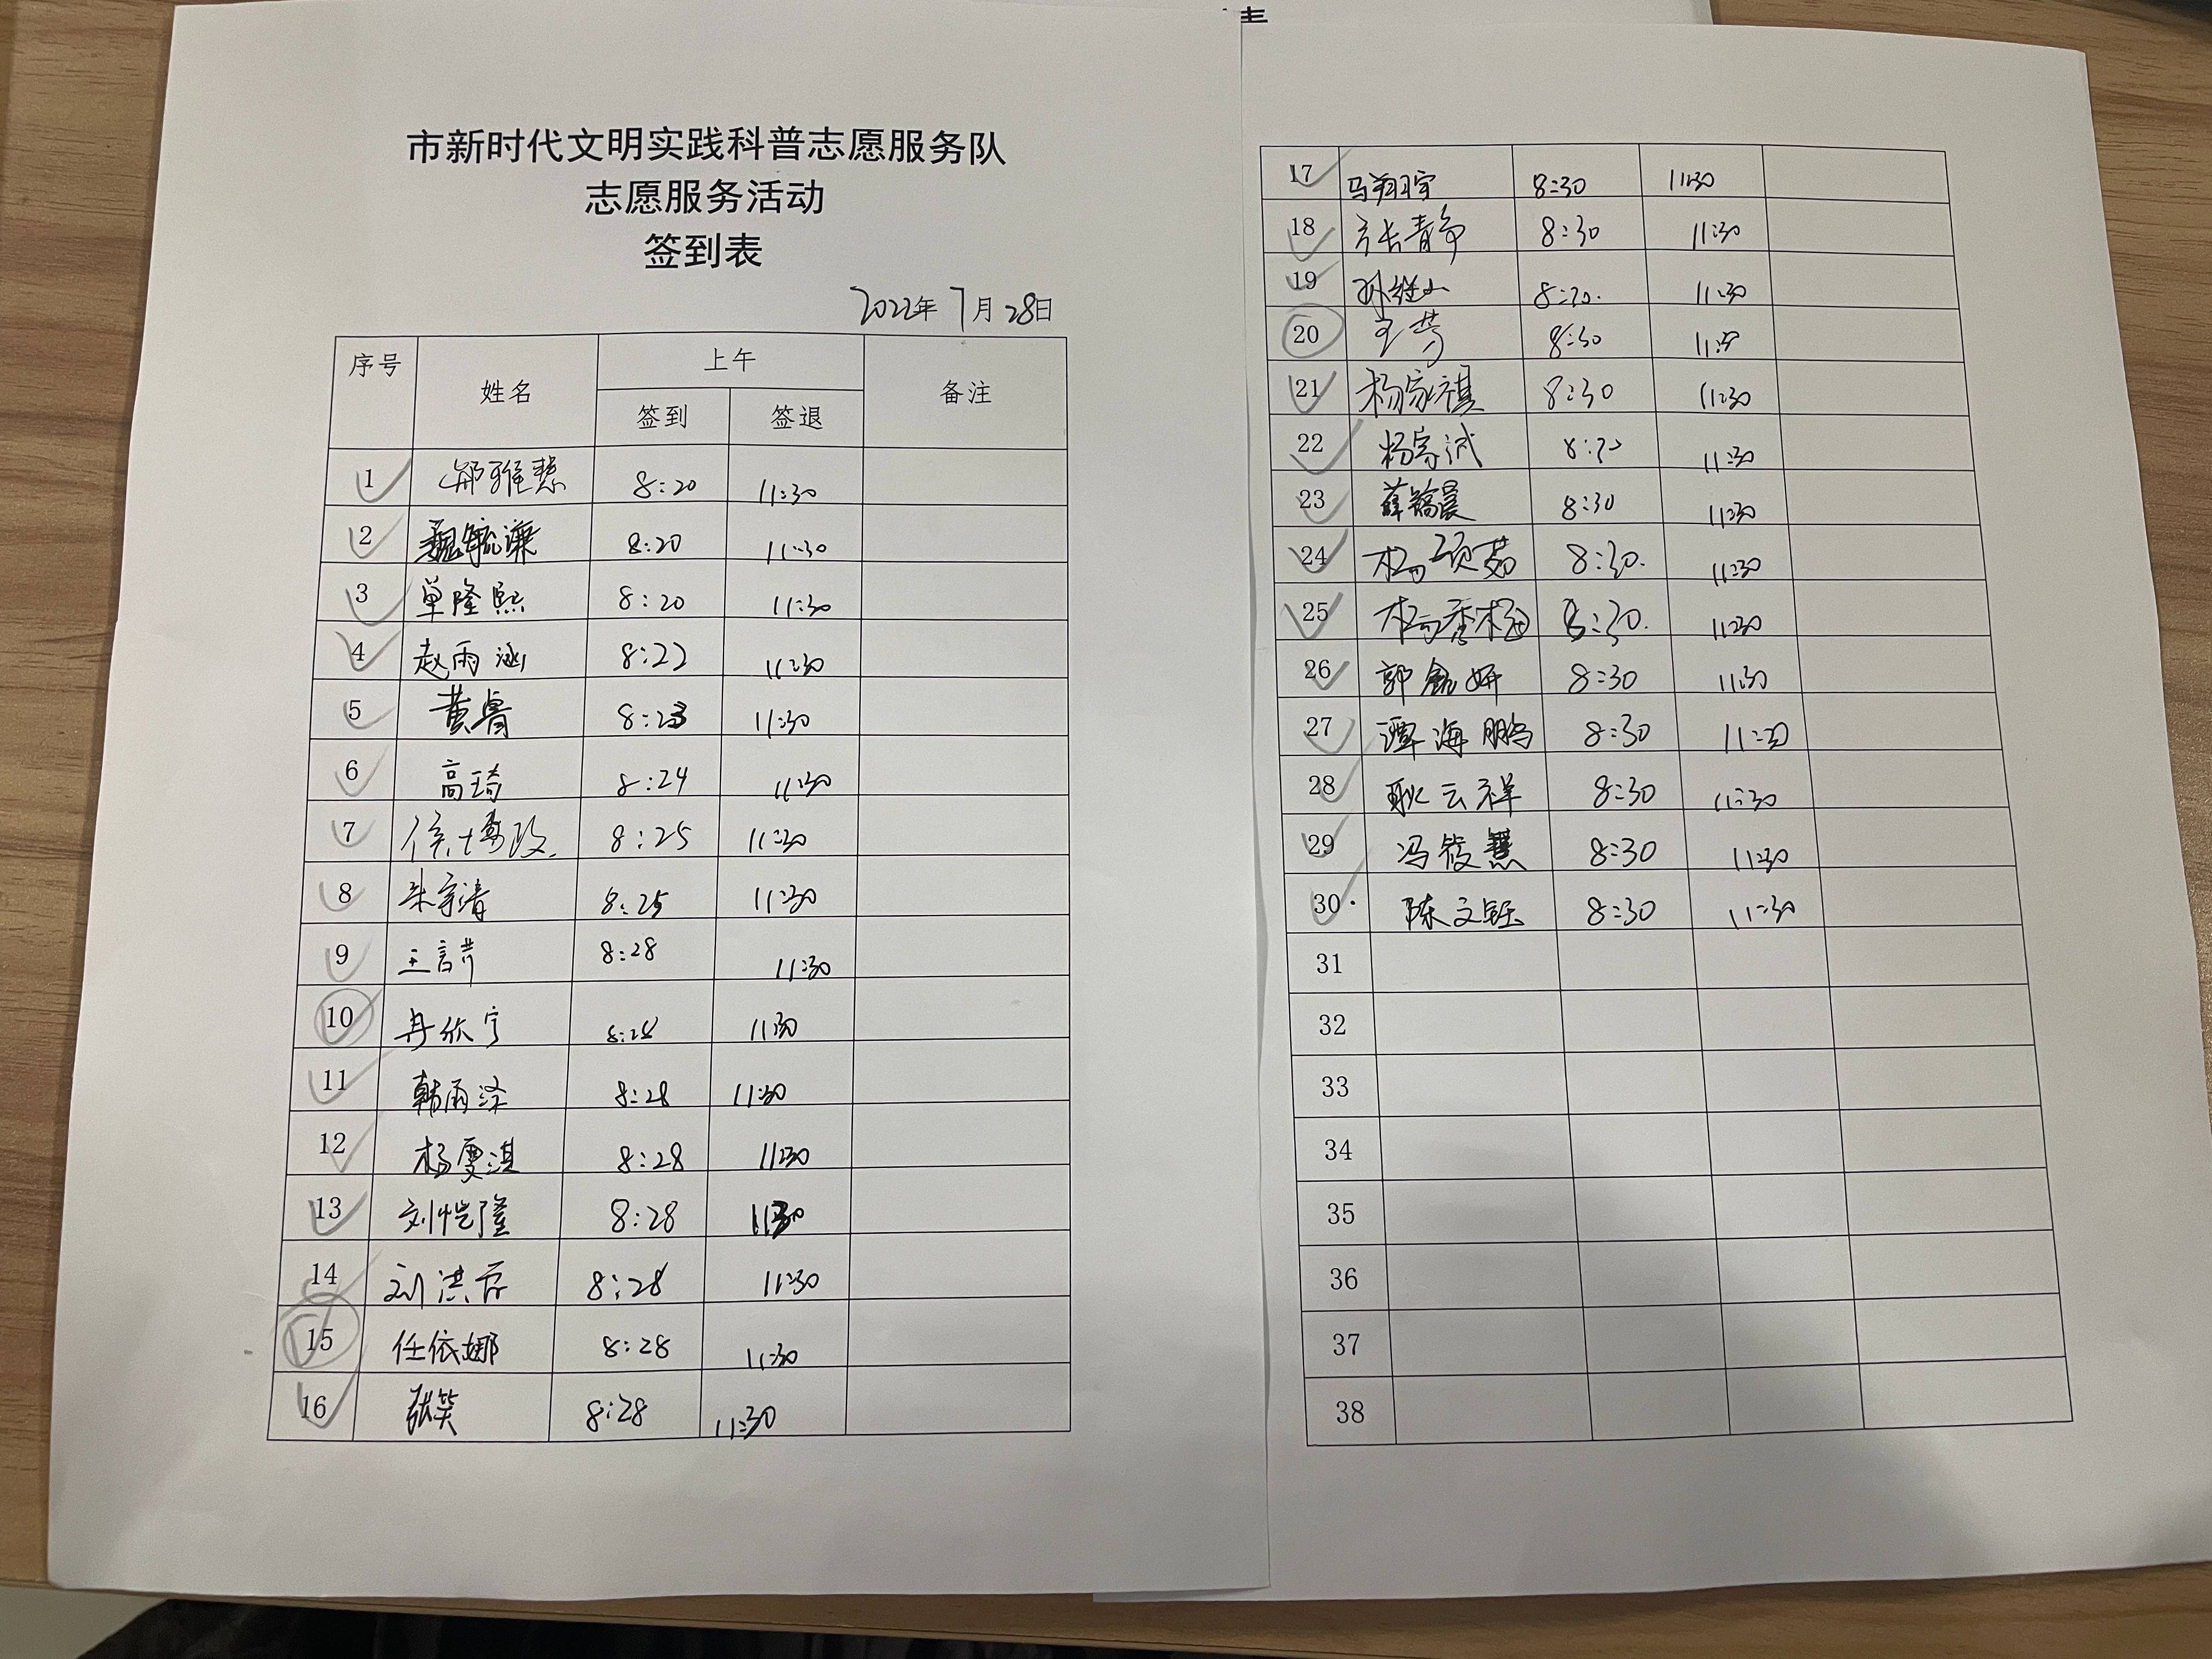 市新时代文明实践科普志愿服务队
志愿服务活动
签到表
2022年 7月 28日
序号 姓名 上午 备注
签到 签退
1 郝雅慧 8:20 11:30
2 魏毓濂 8:20 11:30
3 单隆熙 8:20 11:30
4 赵雨涵 8:22 11:30
5 黄睿 8:23 11:30
6 高琦 8:24 11:30
7 8:25 11:30
8 朱宇清 8:25 11:30
9 8:28 11:30
10 冉依宁 8:28 11:30
11 韩雨泽 8:28 11:30
12 杨雯淇 8:28 11:30
13 刘恺隆 8:28 11:30
14 刘洪存 8:28 11:30
15 任依娜 8:28 11:30
16 张笑 8:28 11:30
17 马翔宇 8:30 11:30
18 8:30 11:30
19 孙继山 8:30. 11:30
20 王芳 8:30 11:30
21 杨家祺 8:30 11:30
22 杨家诚 8:30 11:30
23 8:30 11:30
24 8:30. 11:30
25 杨香梅 8:30. 11:30
26 郭妍 8:30 11:30
27 谭海鹏 8:30 11:30
28 耿云祥 8:30 11:30
29 冯筱慧 8:30 11:30
30 陈文钰 8:30 11:30
31
32
33
34
35
36
37
38